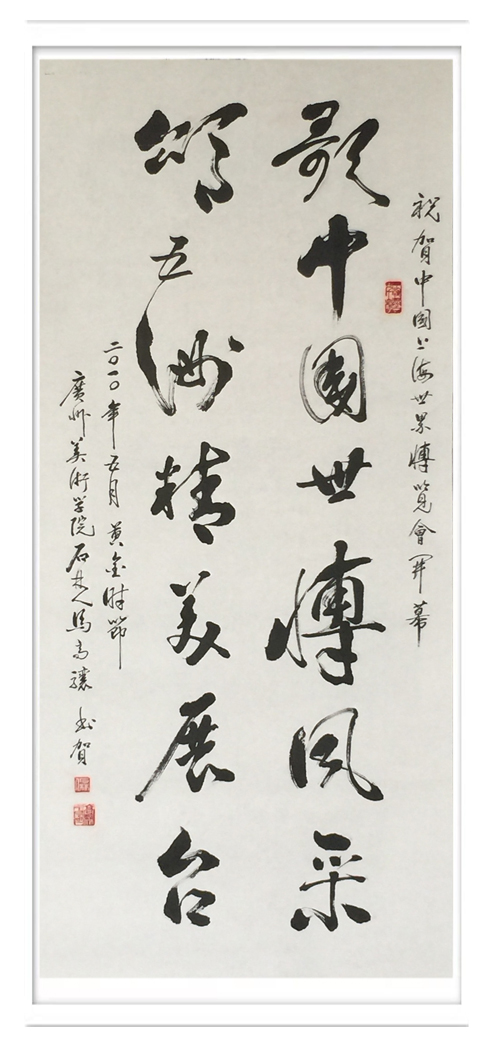 祝賀中國上海世界博覽會開幕
歌中國世博風采
頌五洲精美展台
二〇一〇年五月黄金时節
廣州美術學院石楚人馬高驤书賀